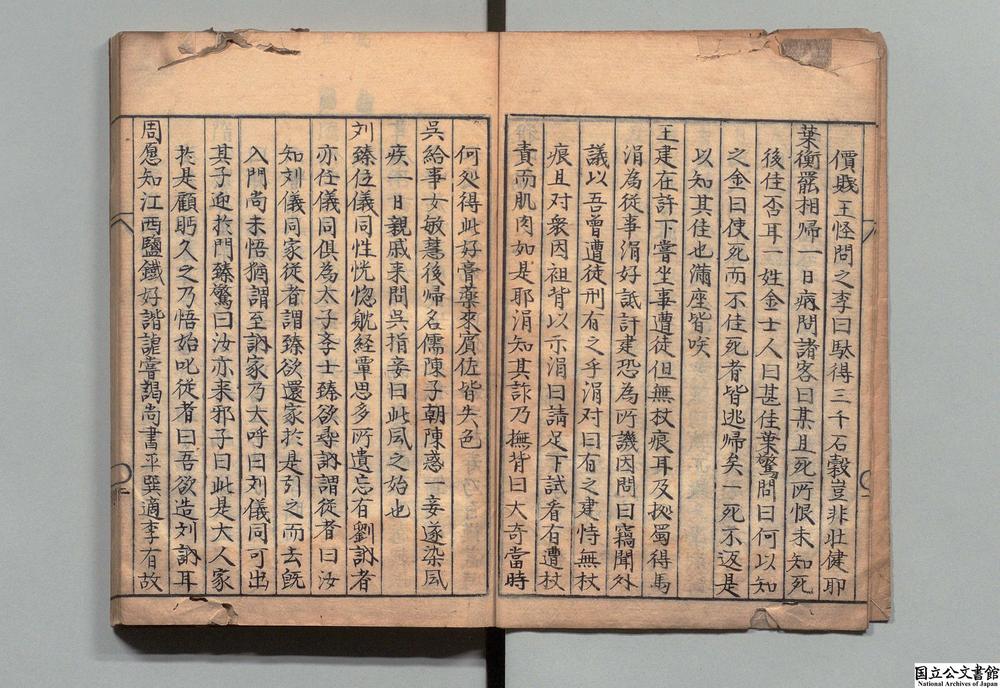 價賤王怪問之李曰馱得三千石穀豈非壮健耶
葉衡罷相帰一日病問諸客曰某且死所恨未知死
後佳否耳一姓金士人曰甚佳葉驚問曰何以知
之金曰使死而不佳死者皆逃帰矣一死不返是
以知其佳也滿座皆咲
王建在許下嘗坐事遭徒但無杖痕耳及拠蜀得馬
涓為從事涓好詆訐建恐為所譏因問曰竊聞外
議以吾曾遭徒刑有之乎涓对曰有之建恃無杖
痕且对衆因袒背以示涓曰請足下試看有遭杖
責而肌肉如是耶涓知其詐乃撫背曰大奇當時
何処得此好膏藥來賓佐皆失色
吳給事女敏慧後帰名儒陳子朝陳惑一妾遂染風
疾一日親戚来問吳指妾曰此風之始也
刘臻位儀同性恍惚躭経覃思多所遺忘有劉訥者
亦任儀同俱為太子斈士臻欲尋訥謂従者曰汝
知刘儀同家従者謂臻欲還家於是引之而去旣
入門尚未悟猶謂至訥家乃大呼曰刘儀同可出
其子迎於門臻驚曰汝亦来邪子曰此是大人家
於是顧眄久之乃悟始叱從者曰吾欲造刘訥耳
周愿知江西鹽鐵好諧謔嘗謁尚書平㢲適李有故
国立公文書館
National Archives of Japan